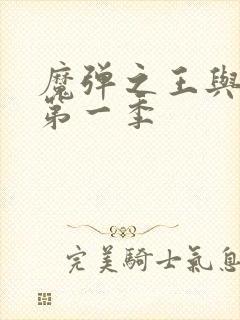 魔弹之王與
第一季
完美騎士氣息